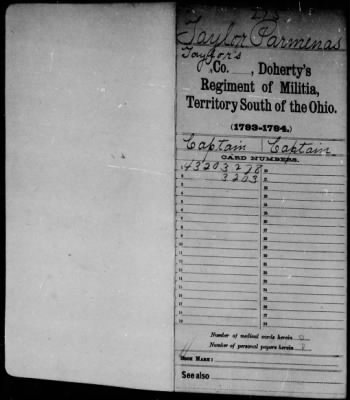 Taylor Parmenas
Taylor's
Co. , Doherty's
Regiment of Militia,
Territory South of the Ohio.
(1793-1794.)
Captain Captain
CARD NUMBERS.
43203228
3203
Number of medical cards herein 0
Number of personal papers herein
BOOK MARK:
See also